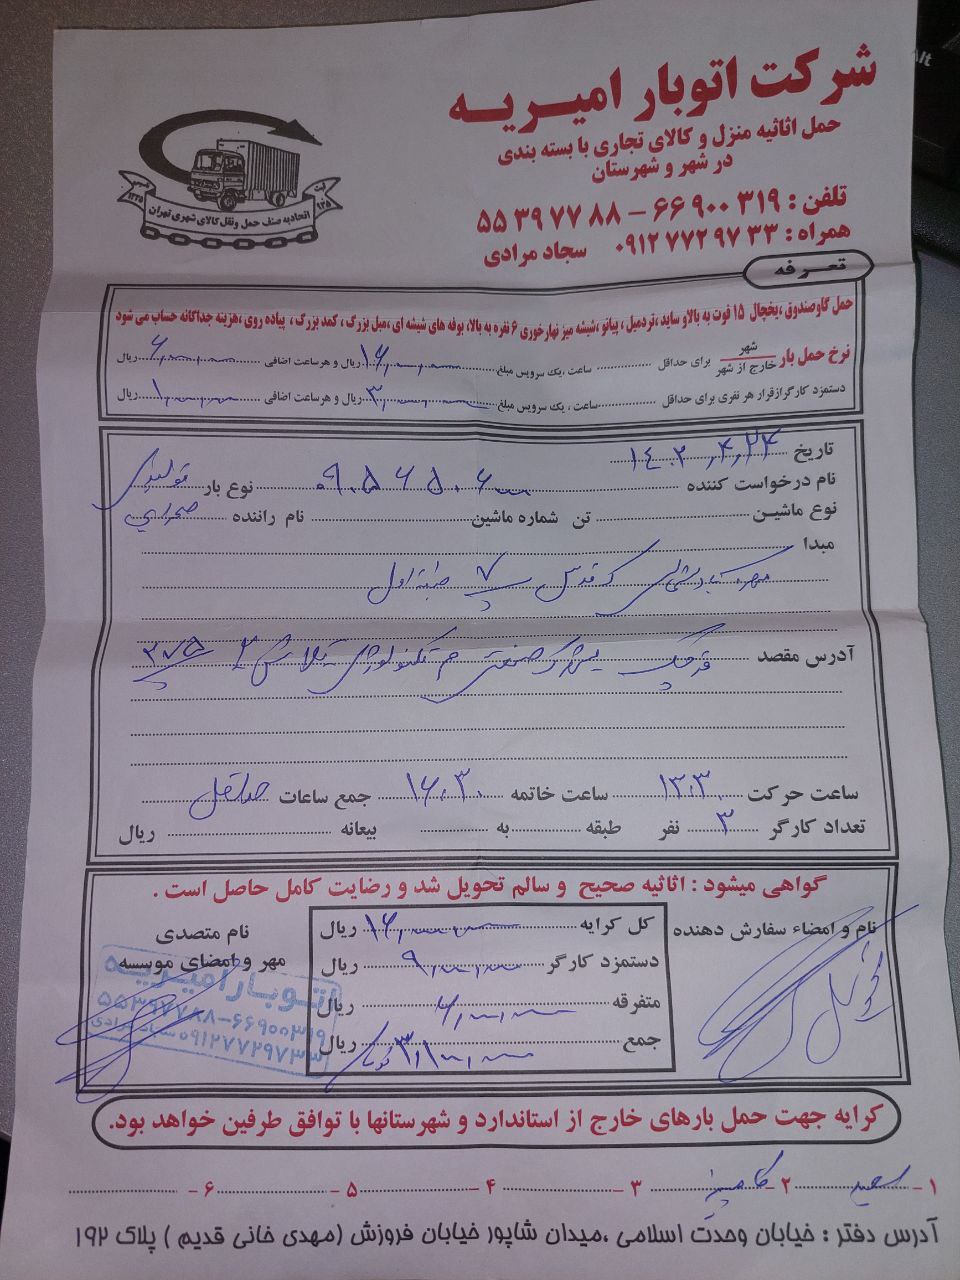 شرکت اتوبار امیریه
حمل اثاثیه منزل و کالای تجاری با بسته بندی
در شهر و شهرستان
تلفن : ۶۶۹۰۰۳۱۹ - ۵۵۳۹۷۷۸۸
همراه : ۰۹۱۲۷۷۲۹۷۳۳ سجاد مرادی
اتحادیه صنف حمل ونقل کالای شهری تهران
تعرفه
حمل گاوصندوق ،یخچال ۱۵ فوت به بالاو ساید ،تردمیل ، پیانو ،شیشه میز نهارخوری ۶ نفره به بالا، بوفه های شیشه ای ،مبل بزرگ ، کمد بزرگ ، پیاده روی ،هزینه جداگانه حساب می شود
نرخ حمل بار شهر خارج از شهر برای حداقل ساعت ،یک سرویس مبلغ ریال و هرساعت اضافی ریال
دستمزد کارگرازقرار هر نفری برای حداقل ساعت ، یک سرویس مبلغ ریال و هرساعت اضافی ریال
تاریخ ۱۴۰۲,۴,۲۴
نام درخواست کننده نوع بار
نوع ماشین تن شماره ماشین نام راننده صحرایی
مبدا
مهرآبادشمالی قدس پ ۷ طبقه اول
آدرس مقصد قرچک ۳۷۵
ساعت حرکت ۱۳:۳۰ ساعت خاتمه ۱۶:۳۰ جمع ساعات حداقل
تعداد کارگر ۳ نفر طبقه به بیعانه ریال
گواهی میشود : اثاثیه صحیح و سالم تحویل شد و رضایت کامل حاصل است .
نام و امضاء سفارش دهنده
کل کرایه ریال
دستمزد کارگر ریال
متفرقه ریال
جمع ریال
نام متصدی
مهر و امضای موسسه
اتوبار امیریه
۵۵۳۹۷۷۸۸-۶۶۹۰۰۳۱۹
۰۹۱۲۷۷۲۹۷۳۳ سجاد مرادی
کرایه جهت حمل بارهای خارج از استاندارد و شهرستانها با توافق طرفین خواهد بود.
۱- سعید ۲- کامبیز ۳- ۴- ۵- ۶-
آدرس دفتر : خیابان وحدت اسلامی ،میدان شاپور خیابان فروزش (مهدی خانی قدیم ) پلاک ۱۹۲